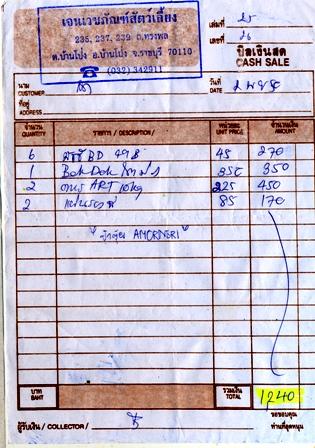 เจนเวชภัณฑ์สัตว์เลี้ยง
235, 237, 239 ถ.ทรงพล
ต.บ้านโป่ง อ.บ้านโป่ง จ.ราชบุรี 70110
(032) 342911
เล่มที่ 25
เลขที่ 26
บิลเงินสด
CASH SALE
นาม
CUSTOMER
วันที่
DATE 2
ที่อยู่
ADDRESS
จำนวน QUANTITY รายการ / DESCRIPTION / หน่วยละ UNIT PRICE จำนวนเงิน AMOUNT
6 BD 45 270
1 Bok Dok 350 350
2 ART 10kg 225 450
2 85 170
AMORNSRI
บาท BAHT รวมเงิน TOTAL 1240
ผู้รับเงิน / COLLECTOR /
ขอขอบคุณ
ท่านที่อุดหนุน